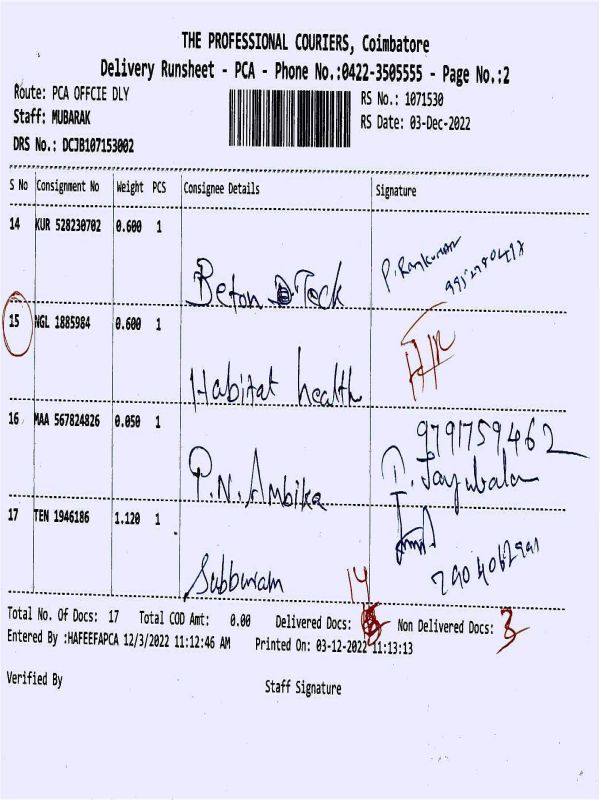 THE PROFESSIONAL COURIERS, Coimbatore
Delivery Runsheet - PCA - Phone No.:0422-3505555 - Page No.:2
Route: PCA OFFCIE DLY
RS No.: 1071530
Staff: MUBARAK
RS Date: 03-Dec-2022
DRS No.: DCJB107153002
S No Consignment No Weight PCS Consignee Details Signature
14 KUR 528230702 0.600 1
Beton Teck P. Rajkumar
15 NGL 1885984 0.600 1
Habitat health
16 MAA 567824826 0.050 1
P.N. Ambika 9791759462
Jayabala
17 TEN 1946186 1.120 1
Subburam
14
Total No. Of Docs: 17 Total COD Amt: 0.00 Delivered Docs: Non Delivered Docs: 3
Entered By :HAFEEFAPCA 12/3/2022 11:12:46 AM Printed On: 03-12-2022 11:13:13
Verified By Staff Signature